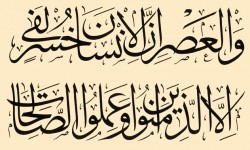 والعصر إن الإنسان لفي خسر
إلا الذين آمنوا وعملوا الصالحات